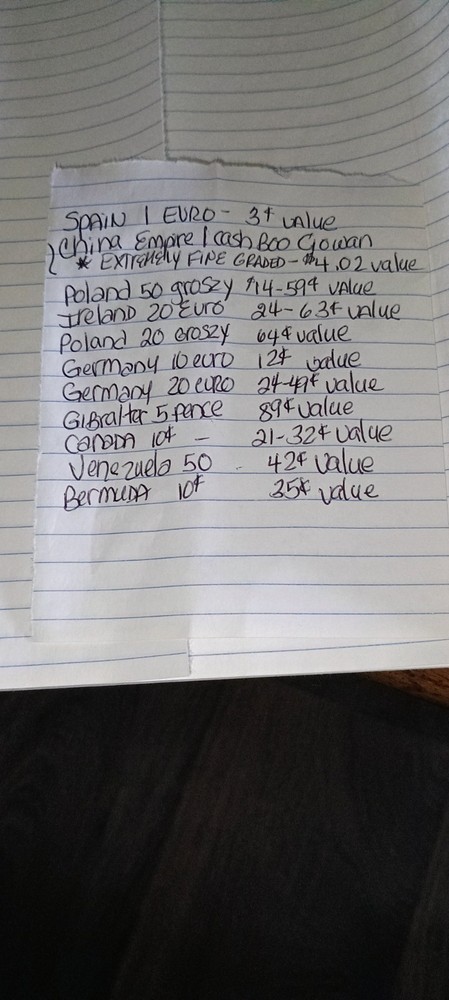 SPAIN 1 EURO - 3¢ value
China Empire 1 cash Boo Gowan
* EXTREMELY FINE GRADED - $4.02 value
Poland 50 groszy $14-59¢ value
Ireland 20 Euro 24-63¢ value
Poland 20 Groszy 64¢ value
Germany 10 euro 12¢ value
Germany 20 euro 24-49¢ value
Gibralter 5 pence 89¢ value
Canada 10¢ - 21-32¢ value
Venezuela 50 - 42¢ value
Bermuda 10¢ 35¢ value